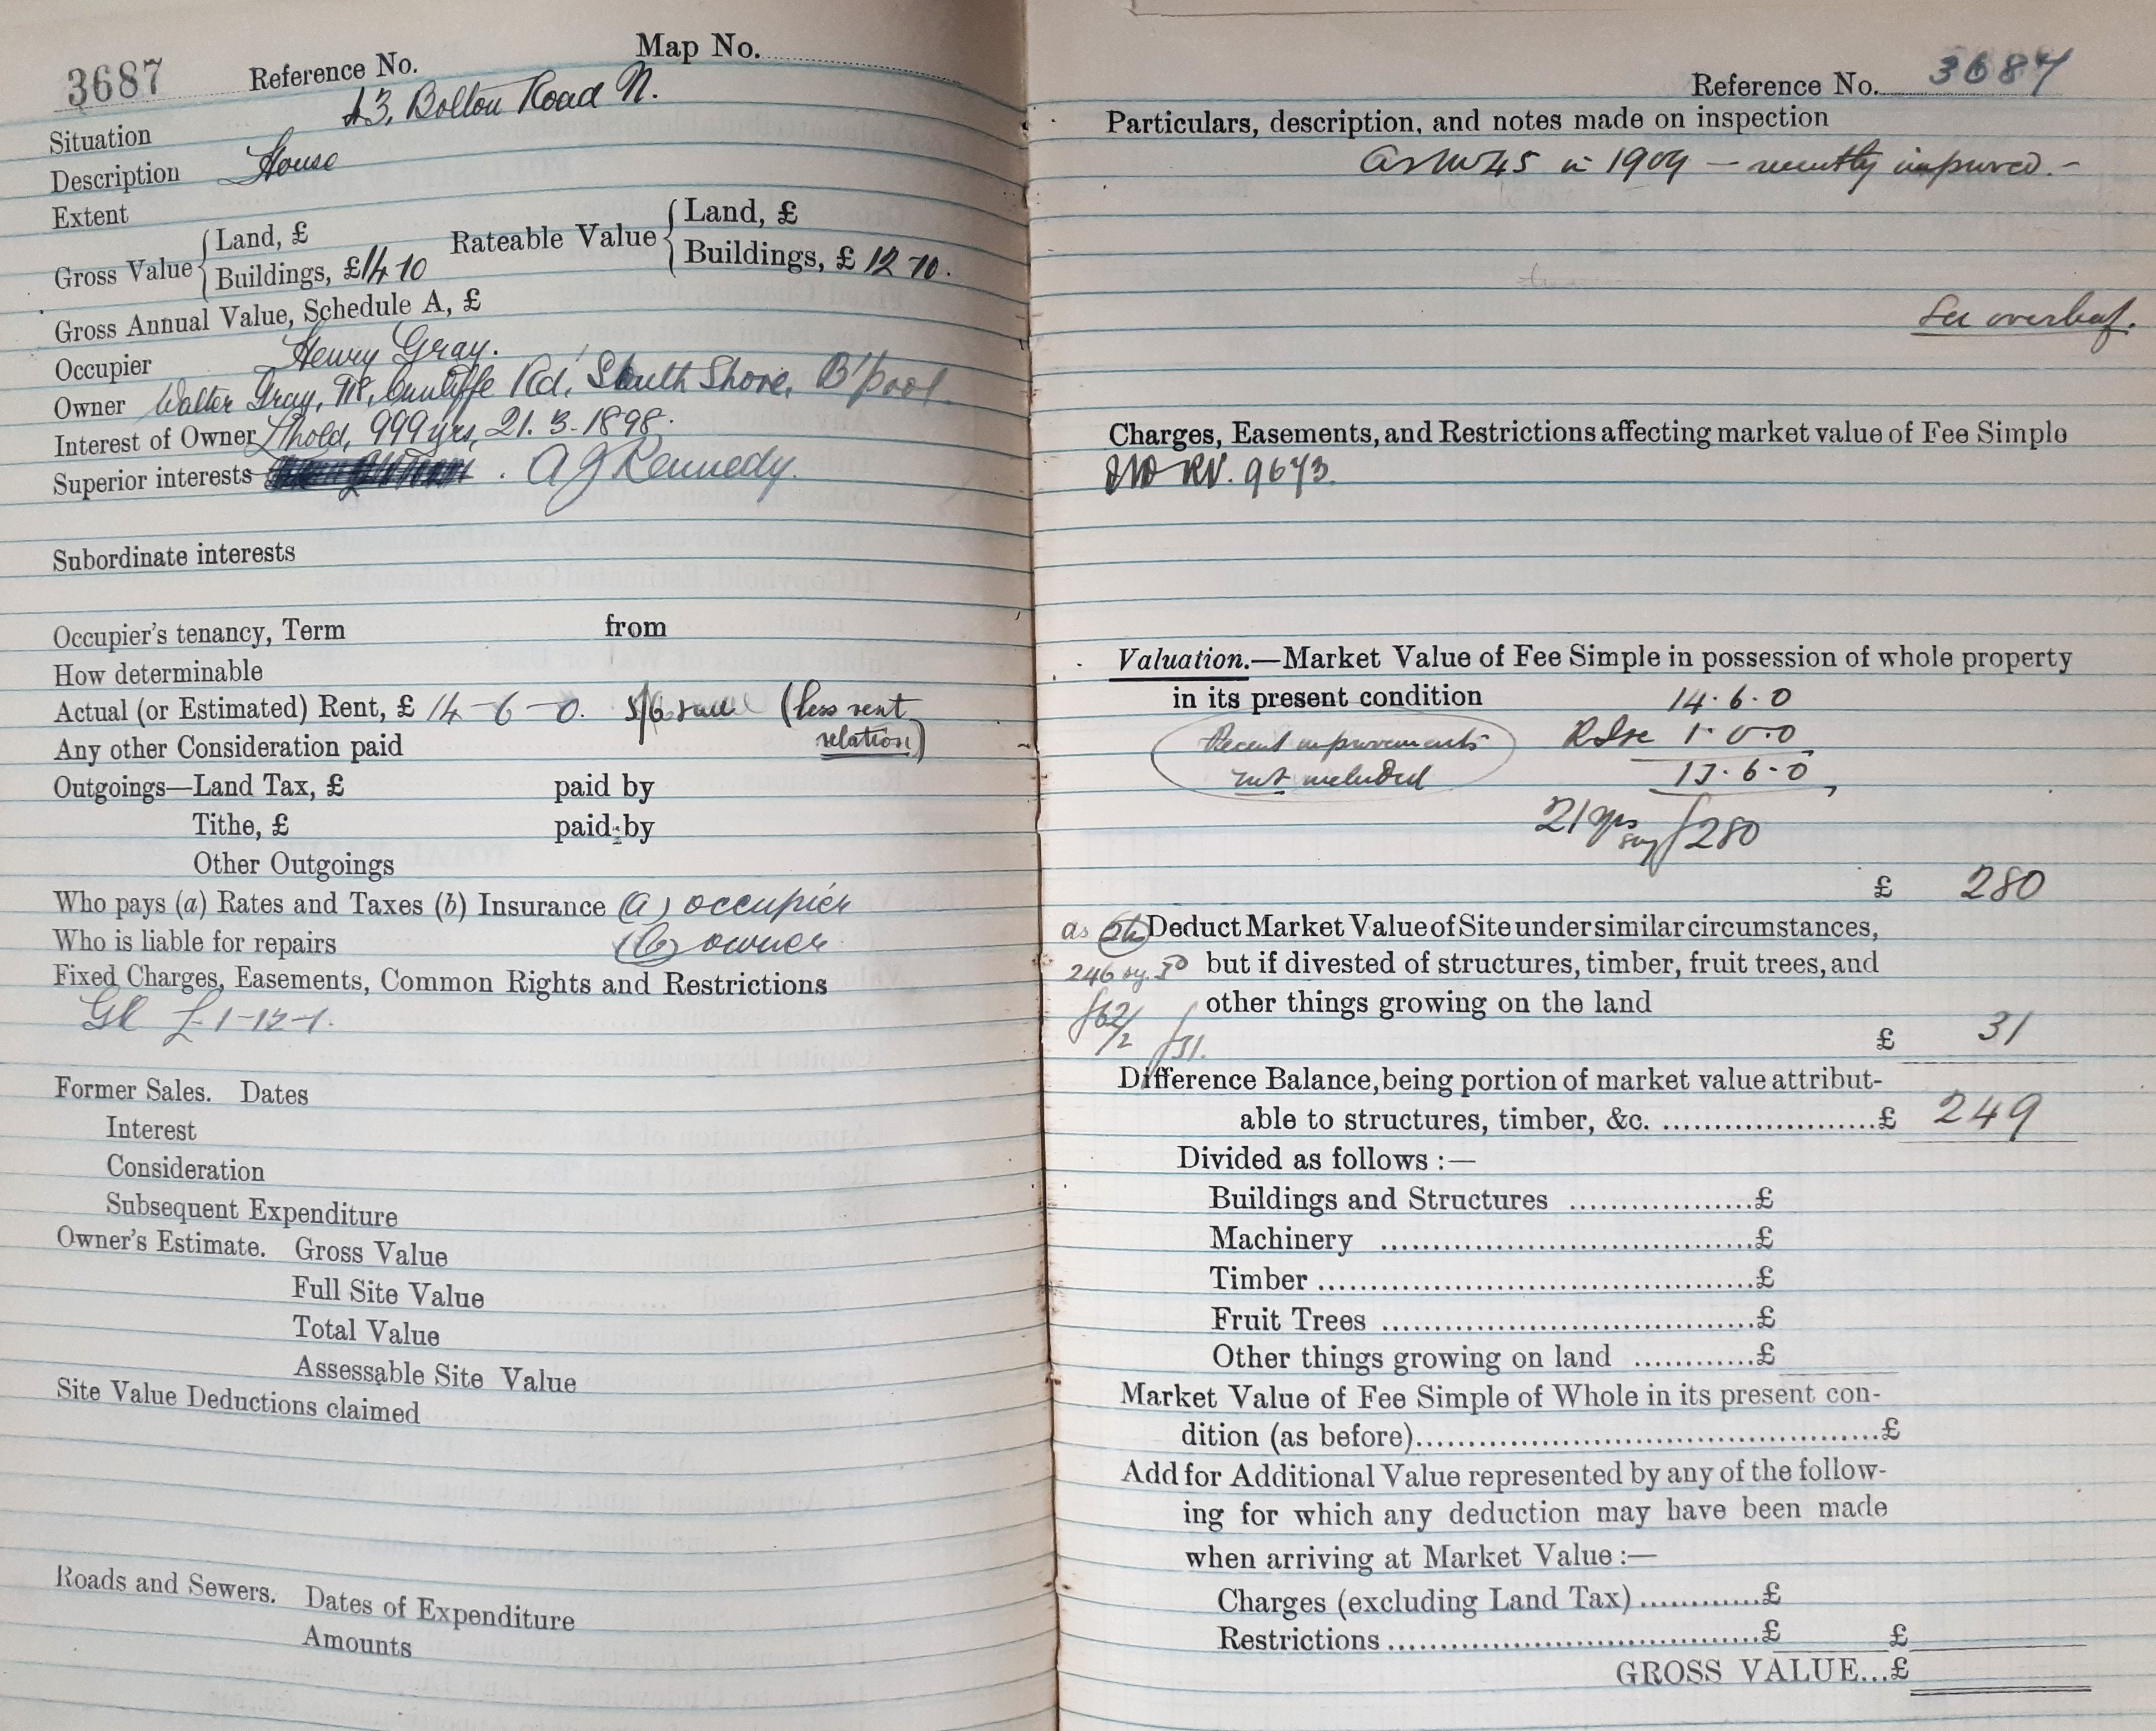 3687 Reference No. Map No.
Situation 43, Bolton Road N.
Description House
Extent
Gross Value { Land, £
Buildings, £14 10 Rateable Value { Land, £
Buildings, £ 12 10.
Gross Annual Value, Schedule A, £
Occupier Henry Gray.
Owner Walter Gray, Cunliffe Rd, South Shore, B'pool.
Interest of Owner L'hold, 999 yrs, 21. 3. 1898.
Superior interests . A J Kennedy.
Subordinate interests
Occupier's tenancy, Term from
How determinable
Actual (or Estimated) Rent, £ 14 - 6 - 0. 5/6 (less rent
Any other Consideration paid relation)
Outgoings—Land Tax, £ paid by
Tithe, £ paid by
Other Outgoings
Who pays (a) Rates and Taxes (b) Insurance (a) occupier
Who is liable for repairs (b) owner
Fixed Charges, Easements, Common Rights and Restrictions
£1-12-1.
Former Sales. Dates
Interest
Consideration
Subsequent Expenditure
Owner's Estimate. Gross Value
Full Site Value
Total Value
Assessable Site Value
Site Value Deductions claimed
Roads and Sewers. Dates of Expenditure
Amounts
Reference No. 3687
Particulars, description, and notes made on inspection
as No 45 in 1909 — recently improved. -
See overleaf.
Charges, Easements, and Restrictions affecting market value of Fee Simple
RV. 9673.
Valuation.—Market Value of Fee Simple in possession of whole property
in its present condition 14 . 6 . 0
Recent improvements Rise 1 . 0 . 0
not included 15 . 6 . 0
21 yrs say £280
£ 280
as Deduct Market Value of Site under similar circumstances,
246 sy. but if divested of structures, timber, fruit trees, and
£62/2 other things growing on the land
£31. £ 31
Difference Balance, being portion of market value attribut-
able to structures, timber, &c. .....................£ 249
Divided as follows :—
Buildings and Structures ..................£
Machinery ....................................£
Timber ..........................................£
Fruit Trees ....................................£
Other things growing on land ............£
Market Value of Fee Simple of Whole in its present con-
dition (as before).............................................£
Add for Additional Value represented by any of the follow-
ing for which any deduction may have been made
when arriving at Market Value :—
Charges (excluding Land Tax)............£
Restrictions....................................£ £
GROSS VALUE...£